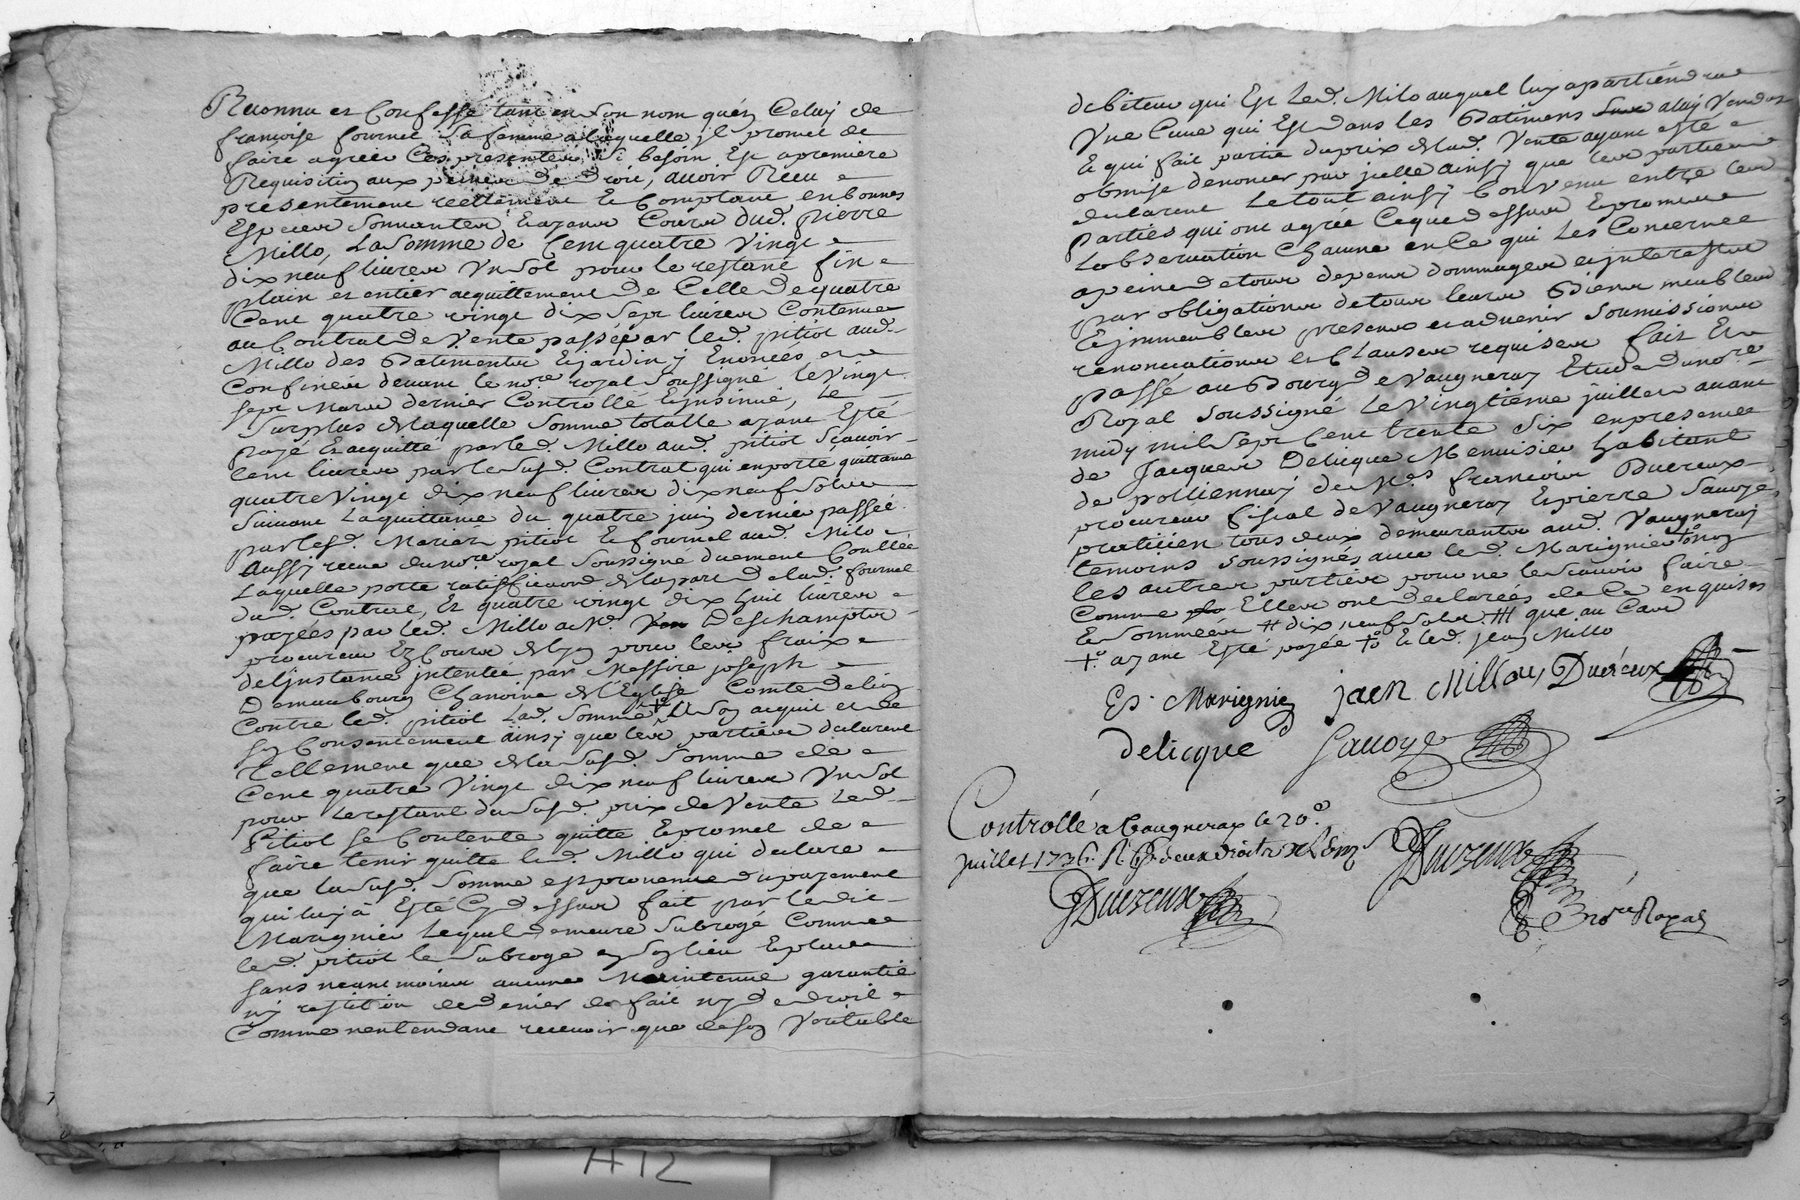 Reconnu et Confessé tant en son nom qu'en Celuy de
françoise fournel sa femme a laquelle jl promet de
faire agréer Ces presentes si besoin Est a premiere
Requisition aux peines de droit, avoir Receu
presentement reellement & Comptant en bonnes
Especes sonnantes & ayant Cours dud. pierre
Millo, La somme de Cent quatre Vingt
dix neuf livres Un sol pour le restant fin
plain et entier acquittement de Celle de quatre
Cent quatre vingt dix sept livres Contenue
au Contrat de Vente passé par led. pitiot aud.
Millo des Batiments & jardin y Enoncés et
Confinés devant le nore. royal soussigné le Vingt
sept Mars dernier Controllé & jnsinué, le
surplus de laquelle somme totalle ayant Esté
payé & acquitté par led. Millo aud. pitiot sçavoir
Cent livres par le susd. Contrat qui en porte quittance
quatre Vingt dix neuf livres dix neuf sols
suivant La quittance du quatre juin dernier passée
par lesd. Mariez pitiot & fournel aud. Milo
Aussy receue du nore. royal soussigné duement Conllée
Laquelle porte ratiffication de la part de lad. fournel
dud. Contrat, Et quatre vingt dix huit livres
payées par led. Millo a Me. Deschamptz
procureur Ez Cours de Lyon pour les fraix
de Ljnstance jntentée par Messire joseph
Damanbourg Chanoine de l'Eglise Comte de Lion
Contre led. pitiot Lad. somme a son acquit et de
son Consentement ainsy que les parties declarent
tellement que de la susd. somme de
Cent quatre Vingt dix neuf livres Un sol
pour Le restant du susd. prix de Vente Led.
Pitiot se Contente quitte & promet de
faire tenir quitte led. Millo qui declare
que la susd. somme est provenue du payement
qui luy à Esté Cy dessus fait par ledit
Marignier lequel demeure subrogé Comme
led. pitiot le subroge en son lieu & place
sans neantmoins aucune Maintenue garantie
ny restitution de deniers de fait ny de droit
Comme n'entendant recevoir que de son Veritable
debiteur qui Est led. Milo auquel luy apartiendra
Une Cuve qui Est dans les Batimens a luy Vendus
& qui fait partie du prix de lad. Vente ayant esté
obmise denoncer par jcelle ainsy que les parties
declarent Le tout ainsy Convenu entre les
parties qui ont agréé Ce que dessus & promettent
Lobservation Chacune en Ce qui Les Concerne
a peine de tous depens dommages et jnterests
par obligations de tous leurs Biens meubles
& jmmeubles presens et advenir soumissions
renonciations et Clauses requises fait Et
passé au Bourg de Vaugneray Etude du nore.
Royal soussigné Le Vingtieme juillet avant
midy mil sept Cent trente six en presence
de Jacques Delicque Menuisier habitant
de pollionnay de Me. francois Ducreux
procureur fiscal de Vaugneray & pierre Savoye
praticien tous deux demeurants aud. Vaugneray
temoins soussignés avec led. Marignier +o non
les autres parties pour ne le sçavoir faire
Comme Elles ont declarées de Ce enquises
& sommées # dix neuf sols ## que au Cas
+o ayant Esté payée +o & led. jean Millo
Es. Marignier jaen Millou Ducreux
delicque Savoye
Controllé a Vaugneray le 20e.
juillet 1736. R
Ducreux Ducreux
nore Royal
H12